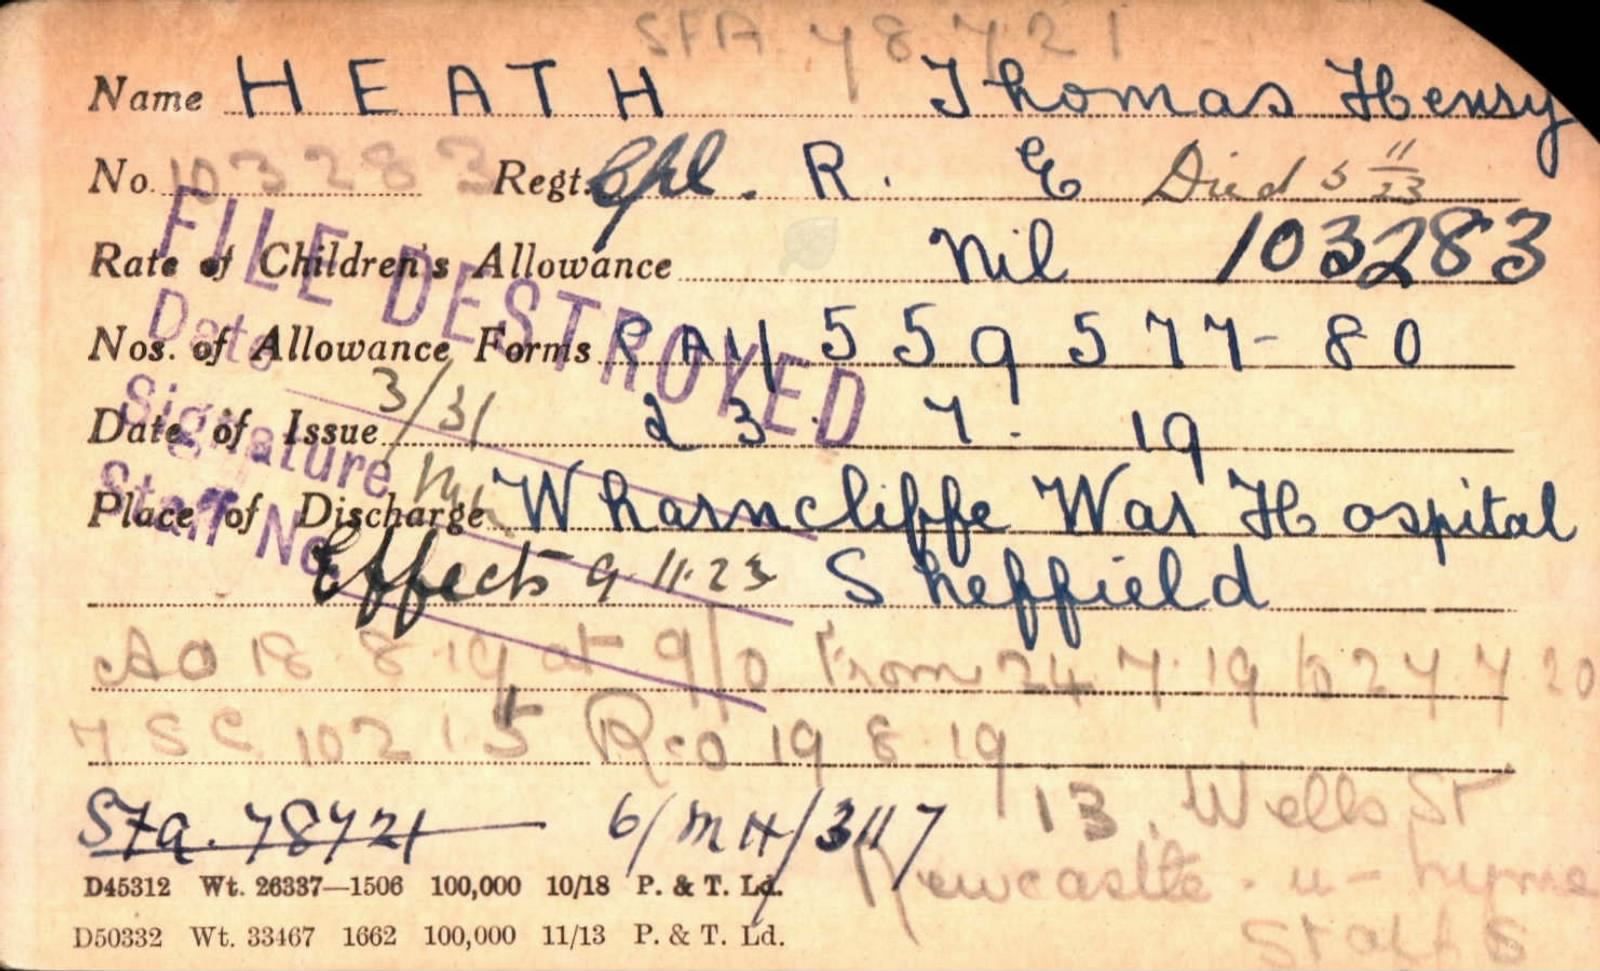 SFA 78721
Name HEATH Thomas Henry
No. 103283 Regt. Cpl. R. E Died 5 11/23
Rate of Children's Allowance Nil 103283
Nos. of Allowance Forms PAY 559577-80
Date of Issue 23. 7. 19
Place of Discharge Wharncliffe War Hospital
Effects 9.11.23 Sheffield
FILE DESTROYED
Date 3/31
Signature
Staff No.
AO 18.8.19 at 9/0 From 24.7.19 to 27.7.20
7 SC 10215 Rco 19 8.19
Sfa. 78721 6/MH/3117 13, Wells St
Newcastle-u-Lyme
Staffs
D45312 Wt. 26337—1506 100,000 10/18 P. & T. Ld.
D50332 Wt. 33467 1662 100,000 11/13 P. & T. Ld.